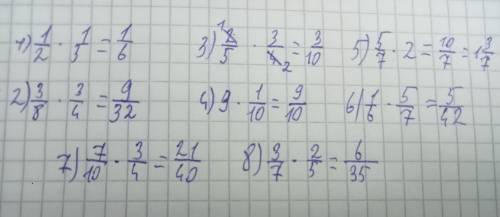 1) 1/2 · 1/3 = 1/6 3) 2/5 · 3/4 = 3/10 (2 → 1, 4 → 2) 5) 5/7 · 2 = 10/7 = 1 3/7
2) 3/8 · 3/4 = 9/32 4) 9 · 1/10 = 9/10 6) 1/6 · 5/7 = 5/42
7) 7/10 · 3/4 = 21/40 8) 3/7 · 2/5 = 6/35